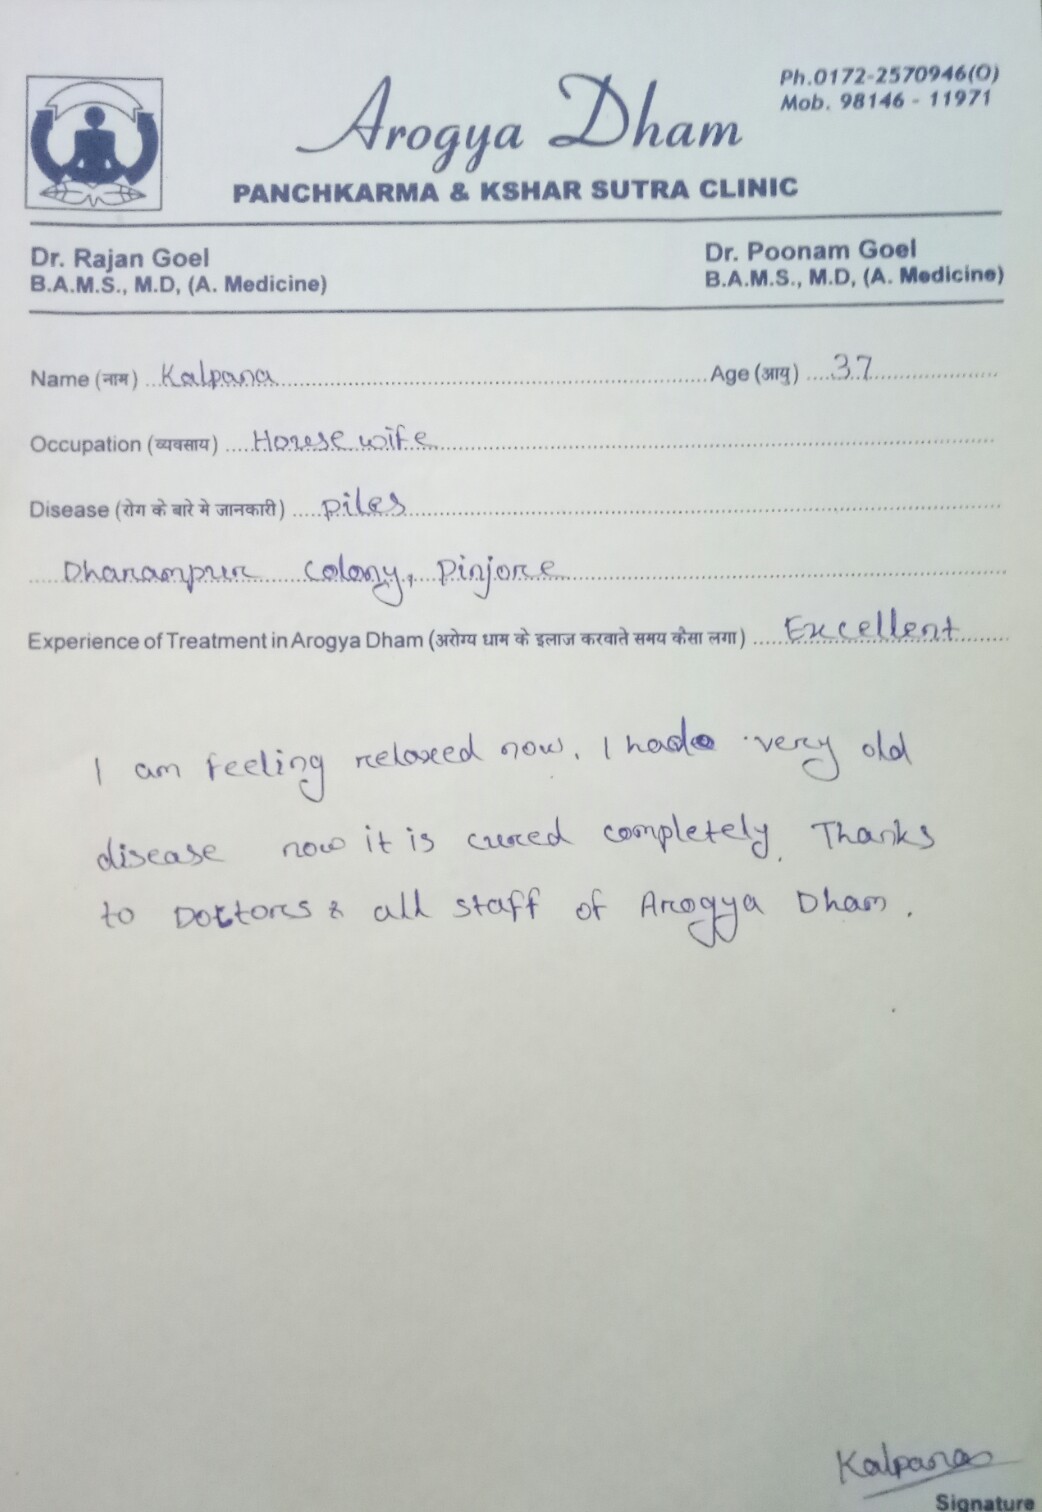 Ph.0172-2570946(O)
Mob. 98146 - 11971
Arogya Dham
PANCHKARMA & KSHAR SUTRA CLINIC
Dr. Rajan Goel
B.A.M.S., M.D, (A. Medicine)
Dr. Poonam Goel
B.A.M.S., M.D, (A. Medicine)
Name (नाम) Kalpana Age (आयु) 37
Occupation (व्यवसाय) House wife
Disease (रोग के बारे मे जानकारी) piles
Dharampur Colony, Pinjore
Experience of Treatment in Arogya Dham (अरोग्य धाम के इलाज करवाते समय कैसा लगा) Excellent
I am feeling relaxed now. I had very old
disease now it is cured completely. Thanks
to Doctors & all staff of Arogya Dham.
Kalpana
Signature